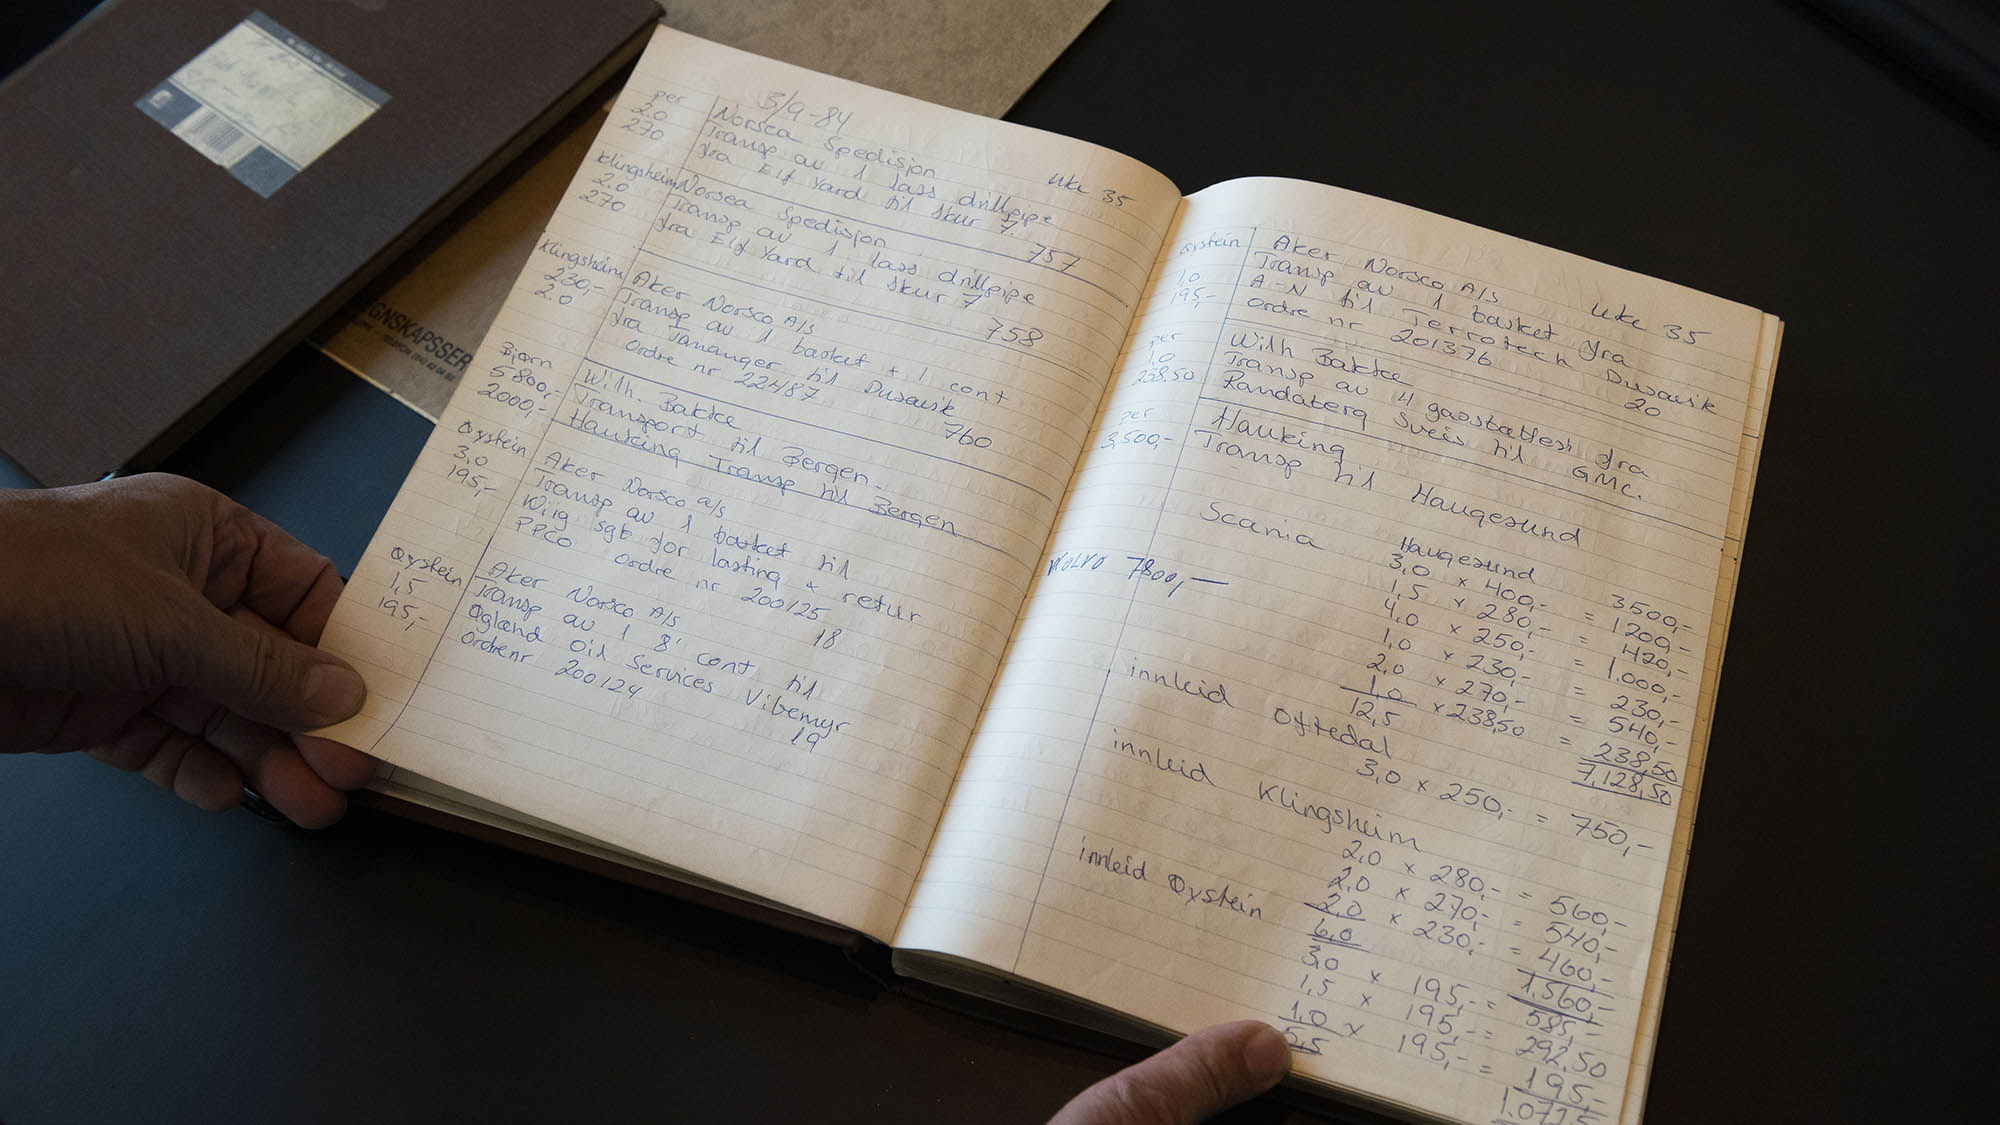 3/9-84
uke 35
per
2.0
270
Norsea Spedisjon
Transp av 1 lass drillpipe
fra Elf Yard til skur 7.
757
Klingsheim
2.0
270
Norsea Spedisjon
Transp av 1 lass drillpipe
fra Elf Yard til skur 7
758
Klingsheim
230,-
2.0
Aker Norsco A/S
Transp av 1 basket + 1 cont
fra Tananger til Dusavik
Ordre nr 224187
760
Bjørn
5800,-
2000,-
Wilh. Bakke
Transport til Bergen.
Hauking Transp til Bergen
Øystein
3,0
195,-
Aker Norsco a/s
Transp av 1 basket til
Wiig sgb for lasting + retur
PPCO Ordre nr 200125
18
Øystein
1,5
195,-
Aker Norsco A/s
Transp av 1 8' cont til
Øgland Oil Services Vibemyr
Ordrenr 200124
19
uke 35
Øystein
1,0
195,-
Aker Norsco A/S
Transp av 1 basket fra
A-N til Terrotech Dusavik
Ordre nr 201376
20
per
1.0
238.50
Wilh Bakke
Transp av 4 fra
Randaberg Sveis til GMC.
per
3,500,-
Hauking
Transp til Haugesund
Scania
Haugesund 3500,-
3,0 x 400,- = 1200,-
1,5 x 280,- = 420,-
4,0 x 250,- = 1.000,-
1,0 x 230,- = 230,-
2,0 x 270,- = 540,-
1,0 x 238,50 = 238,50
12,5 7,128,50
Volvo 7800,-
innleid Oftedal
3,0 x 250,- = 750,-
innleid Klingsheim
2,0 x 280,- = 560,-
2,0 x 270,- = 540,-
2,0 x 230,- = 460,-
6,0 1.560,-
innleid Øystein
3,0 x 195,- = 585,-
1,5 x 195,- = 292,50
1,0 x 195,- = 195,-
5,5
EGNSKAPSSER